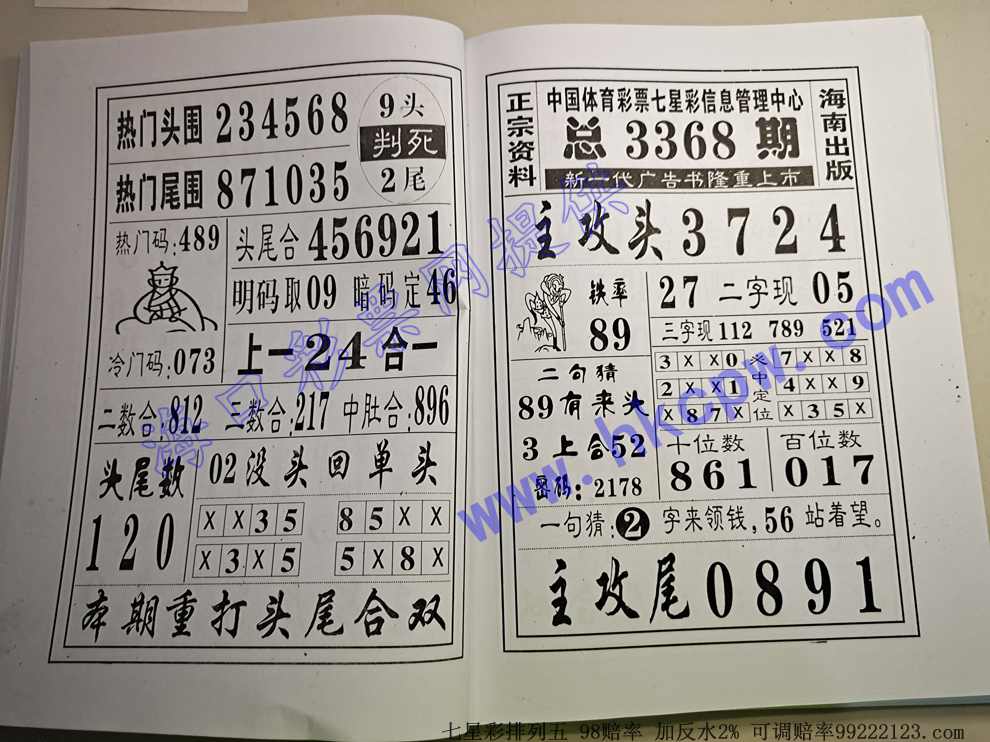 热门头围 234568
9头
判死
2尾
热门尾围 871035
热门码:489
头尾合 456921
明码取09 暗码定46
冷门码:073
上一24合一
二数合:812 三数合:217 中肚合:896
头尾数
120
02没头回单头
XX35 85XX
X3X5 5X8X
本期重打头尾合双
正宗资料
中国体育彩票七星彩信息管理中心
总 3368 期
新一代广告书隆重上市
海南出版
主攻头 3724
铁率
89
27 二字现 05
三字现 112 789 521
3XX0 7XX8
2XX1 4XX9
X87X X35X
必中定位
二句猜
89有来头
3上合52
密码:2178
十位数
861
百位数
017
一句猜:2字来领钱,56站着望。
主攻尾 0891
海口彩票网提供
www.hkcpw.com
七星彩排列五 98赔率 加反水2% 可调赔率99222123.com